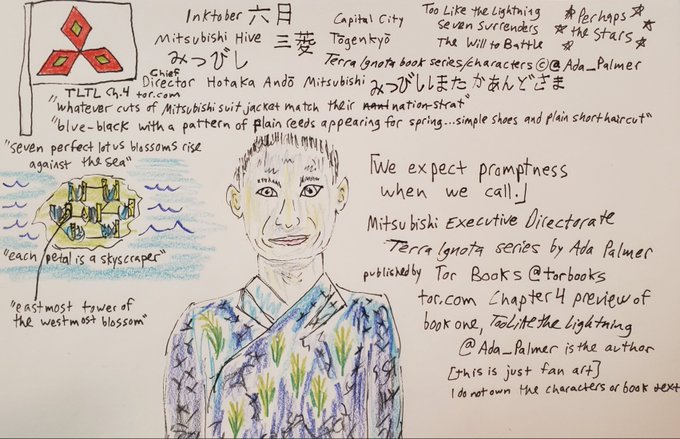 Inktober 六月
Capital City
Too Like the Lightning
Perhaps
Mitsubishi Hive 三菱
Tōgenkyō
Seven Surrenders
the Stars
みつびし
The Will to Battle
Terra Ignota book series/characters © @Ada_Palmer
Chief
Director Hotaka Andō Mitsubishi みつびししまたかあんどさま
TLTL Ch.4 tor.com
"whatever cuts of Mitsubishi suit jacket match their nation-strat"
"blue-black with a pattern of plain reeds appearing for spring...simple shoes and plain short haircut"
"seven perfect lotus blossoms rise
against the sea"
"each petal is a skyscraper"
"eastmost tower of
the westmost blossom"
「We expect promptness
when we call.」
Mitsubishi Executive Directorate
Terra Ignota series by Ada Palmer
published by Tor Books @torbooks
tor.com Chapter 4 preview of
book one, Too Like the Lightning
@Ada_Palmer is the author
[this is just fan art]
I do not own the characters or book text